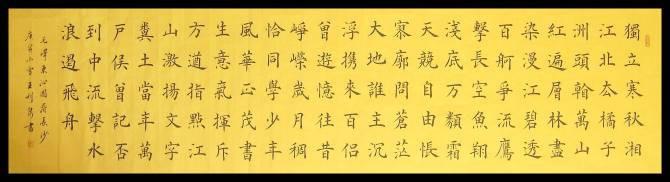 獨立寒秋湘
江北去橘子
洲頭看萬山
紅遍層林盡
染漫江碧透
百舸爭流鷹
擊長空魚翔
淺底萬類霜
天競自由悵
寥廓問蒼茫
大地誰主沉
浮攜來百侶
曾遊憶往昔
崢嶸歲月稠
恰同學少年
風華正茂書
生意氣揮斥
方遒指點江
山激揚文字
糞土當年萬
戶侯曾記否
到中流擊水
浪遏飛舟
毛澤東沁園春長沙
庚寅小雪王書